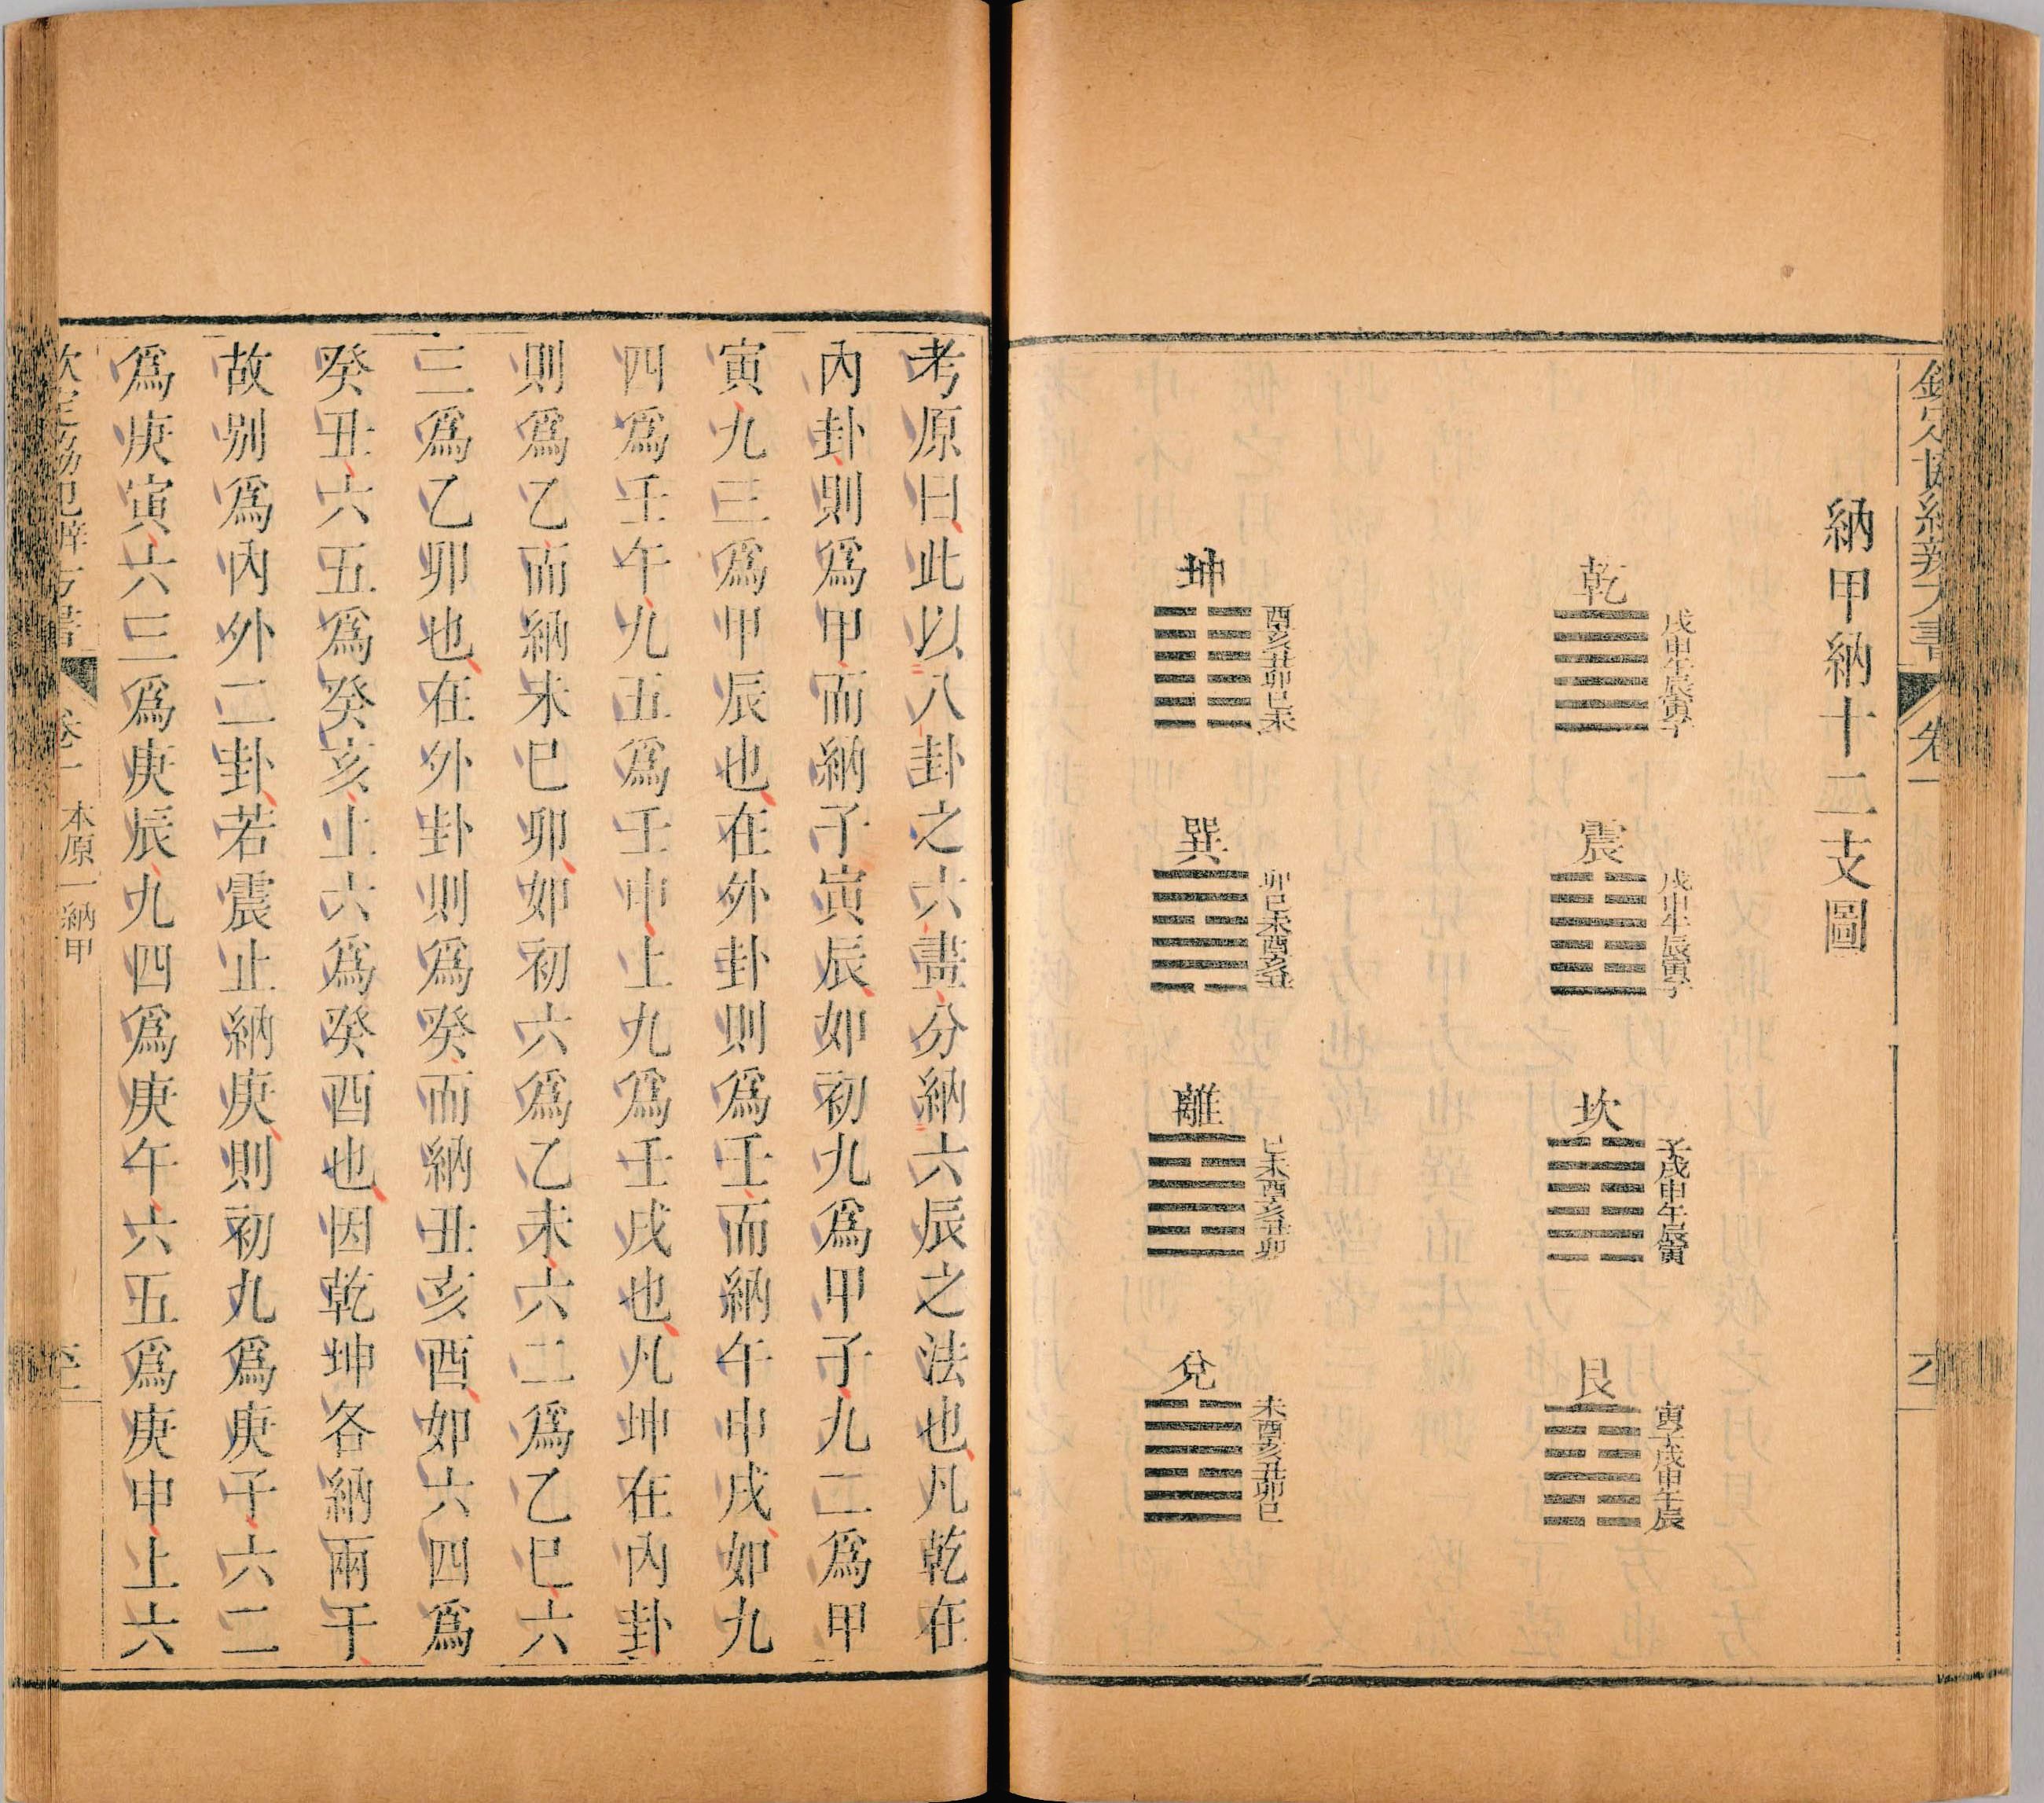 欽定協紀辨方書 卷一
納甲納十二支圖
乾
戌申午辰寅子
震
戌申午辰寅子
坎
子戌申午辰寅
艮
寅子戌申午辰
坤
酉亥丑卯巳未
巽
卯巳未酉亥丑
離
巳未酉亥丑卯
兌
未酉亥丑卯巳
考原曰此以八卦之六畫分納六辰之法也凡乾在
內卦則爲甲而納子寅辰如初九爲甲子九二爲甲
寅九三爲甲辰也在外卦則爲壬而納午申戌如九
四爲壬午九五爲壬申上九爲壬戌也凡坤在內卦
則爲乙而納未巳卯如初六爲乙未六二爲乙巳六
三爲乙卯也在外卦則爲癸而納丑亥酉如六四爲
癸丑六五爲癸亥上六爲癸酉也因乾坤各納兩干
故別爲內外二卦若震止納庚則初九爲庚子六二
爲庚寅六三爲庚辰九四爲庚午六五爲庚申上六
欽定協紀辨方書 卷一 本原一納甲